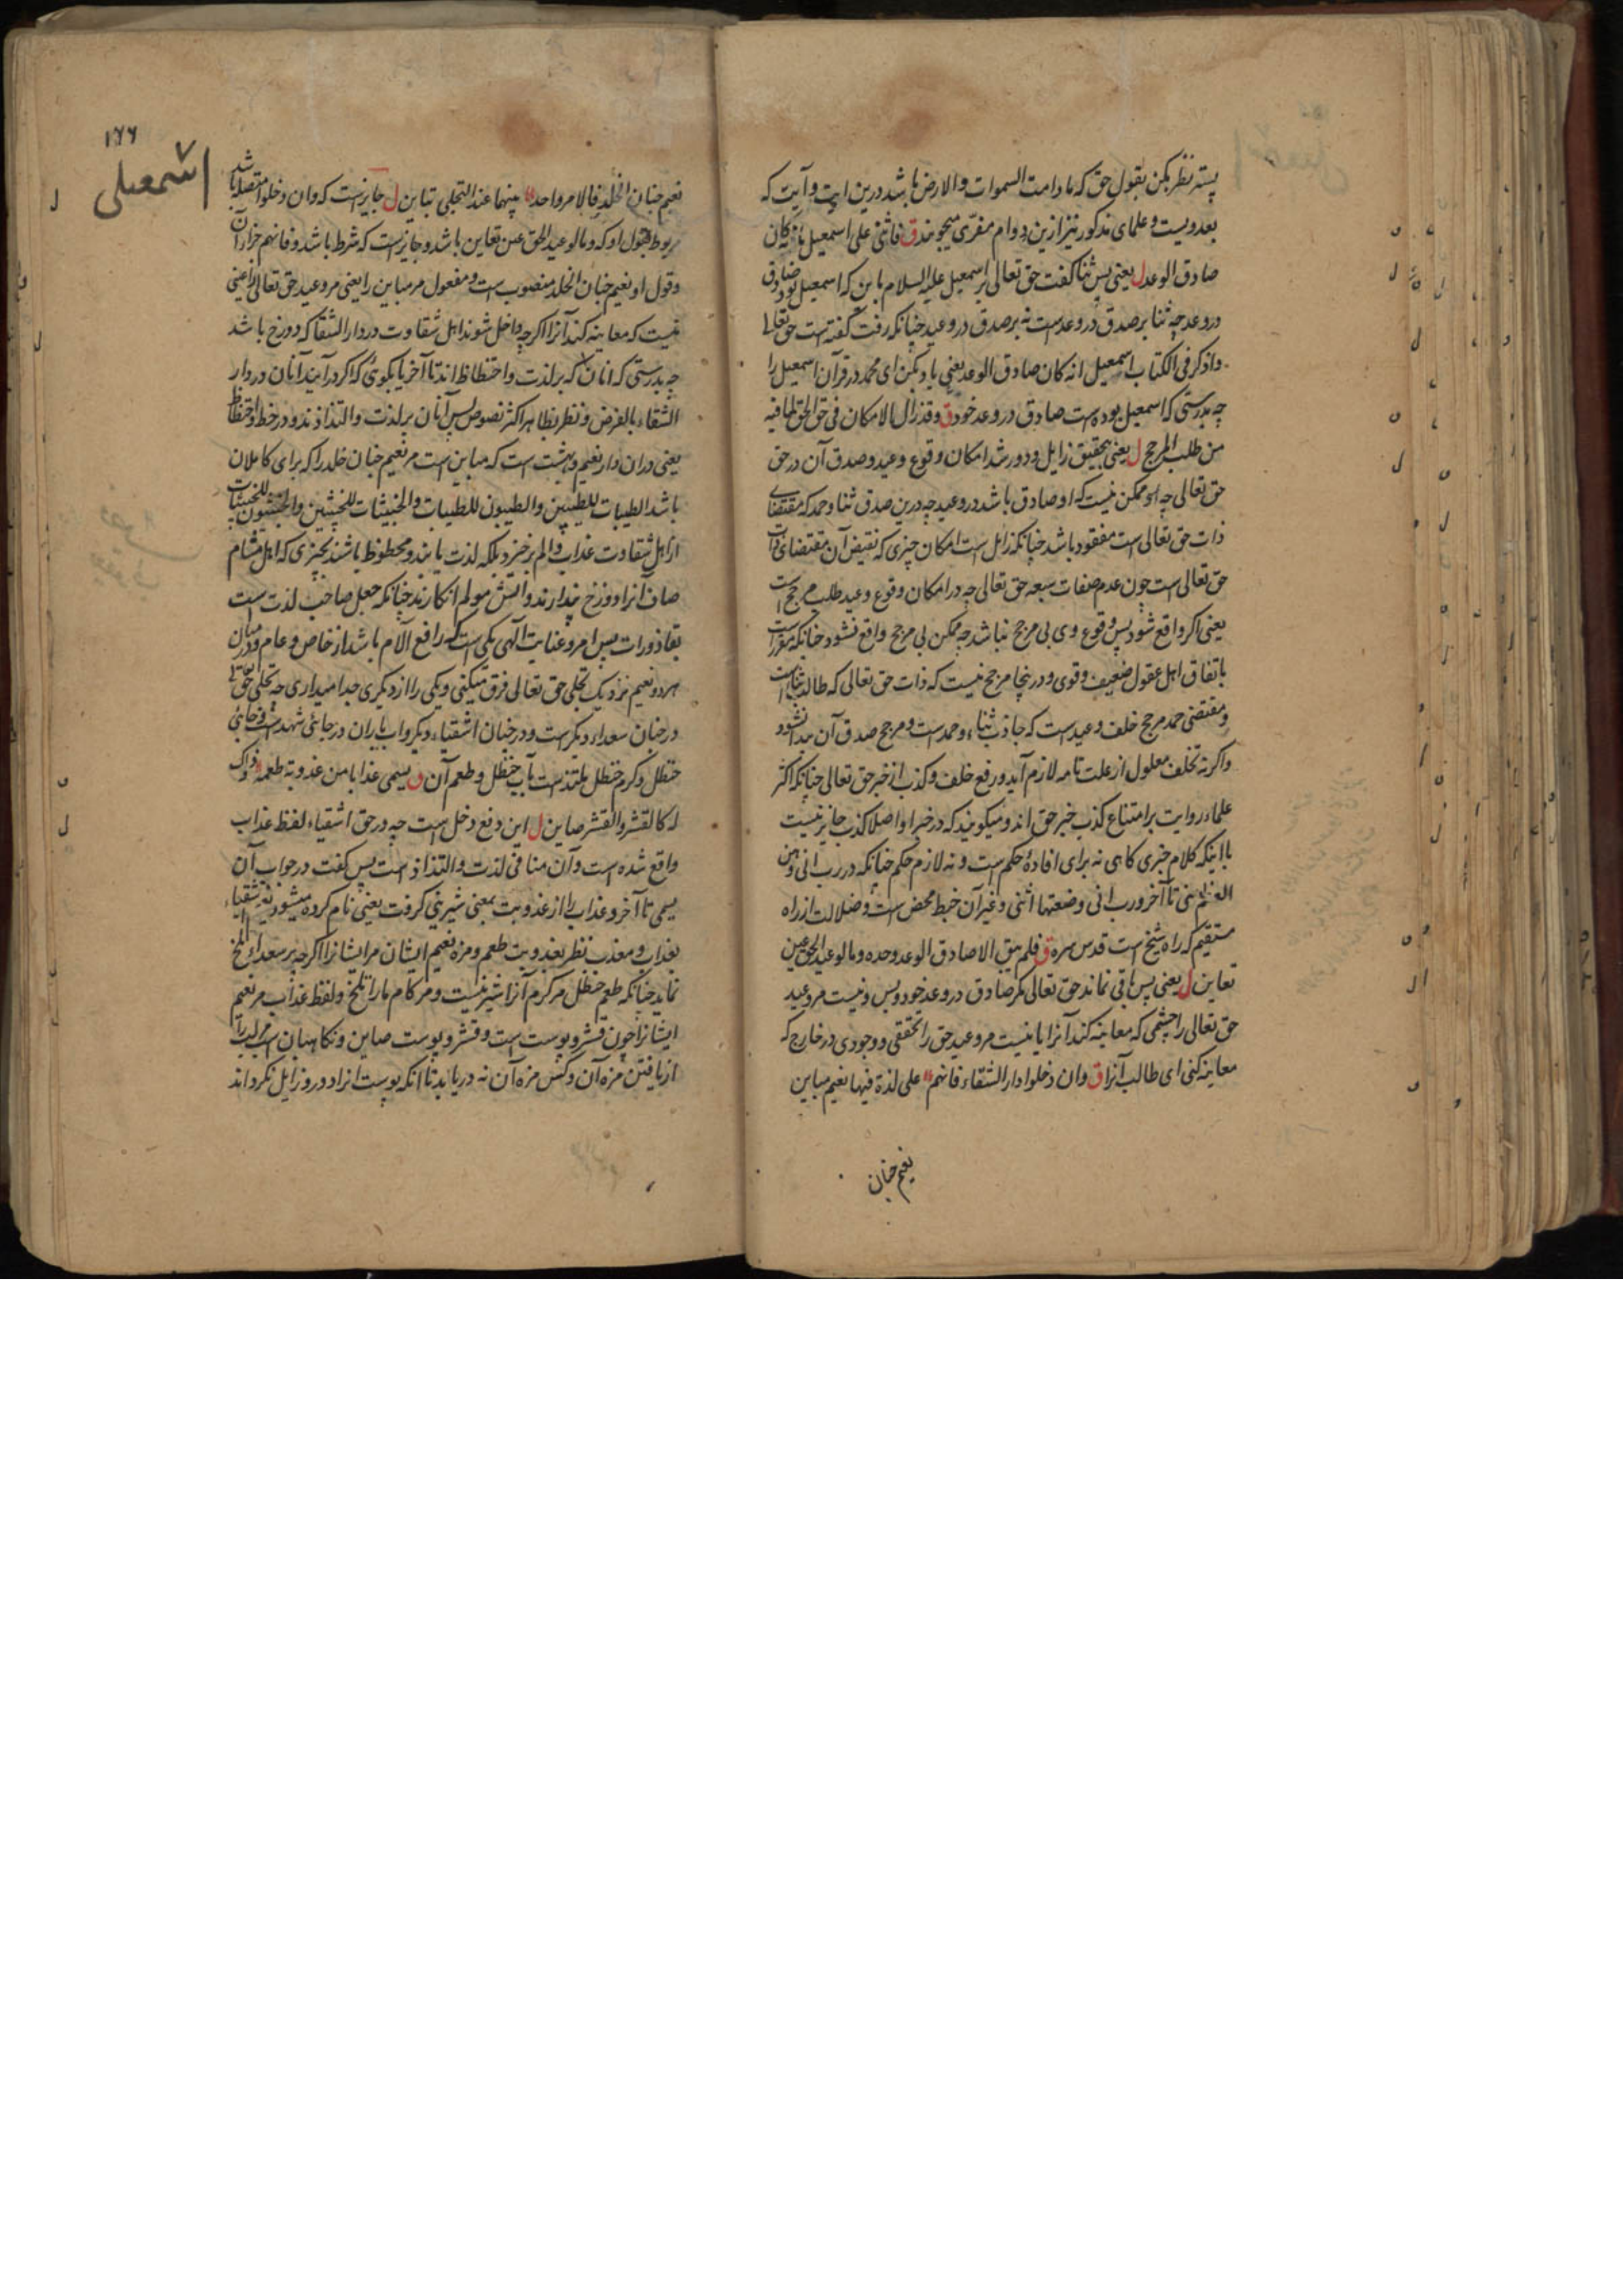 پستر نظر بکن بقول حق که ما دامت السموات والارض باشد درین ایت و آیت که
بعد ویست و علمای مذکور نیز ازین دوام مفری میجویند ق فاثنی علی اسمعیل بانه کان
صادق الوعد ل یعنی پس ثنا کفت حق تعالی بر اسمعیل علیه السلام باین که اسمعیل بود صادق
در وعد چه ثنا بر صدق در وعد است نه بر صدق در وعید چنانکه رفت کفته است حق تعالی
واذکر فی الکتاب اسمعیل انه کان صادق الوعد یعنی یاد بکن ای محمد در قرآن اسمعیل را
چه بدرستی که اسمعیل بوده است صادق در وعد خود ق وقد زال الامکان فی حق الحق لما فیه
من طلب المرجح ل یعنی بتحقیق زایل و دور شد امکان وقوع وعید و صدق آن در حق
حق تعالی چه ممکن نیست که او صادق باشد در وعید چه درین صدق ثنا و حمد که مقتضای
ذات حق تعالی است مفقود باشد چنانکه زایل است امکان چیزی که نقیض آن مقتضای ذات
حق تعالی است چون عدم صفات سبعه حق تعالی چه در امکان وقوع وعید طلب مرجح است
یعنی اکر واقع شود پس وقوع وی بی مرجح نباشد چه ممکن بی مرجح واقع نشود چنانکه مقرر است
باتفاق اهل عقول ضعیف و قوی و در ینجا مرجح نیست که ذات حق تعالی که طالب ثنا است
و مقتضی حمد مرجح خلف وعید است که جاذب ثناء و حمد است و مرجح صدق آن پیدا نشود
واکر نه تخلف معلول از علت تامه لازم آید و رفع خلف و کذب از خبر حق تعالی چنانکه اکثر
علماء روایت بر امتناع کذب خبر حق اند و میکویند که در خبر او اصلا کذب جایز نیست
با اینکه کلام خبری کاهی نه برای افادهٔ حکم است و نه لازم حکم چنانکه در رب انی وهن
العظم منی تا آخر و رب انی وضعتها انثی و غیر آن خبط محض است و ضلالت از راه
مستقیم که راه شیخ است قدس سره ق فلم یبق الا صادق الوعد وحده وما لوعید الحق عین
تعاین ل یعنی پس باقی نماند حق تعالی مکر صادق در وعد خود و بس و نیست مر وعید
حق تعالی را چشمی که معاینه کند آنرا یا نیست مر وعید حق را تحققی و وجودی در خارج که
معاینه کنی ای طالب آنرا ق وان دخلوا دار الشقاء فانهم علی لذة فیها نعیم مباین
نعیم جنان
۱۶۶
اسمعیلی
نعیم جنان الخلد فالامر واحد بینهما عند التجلی تباین ل جایز است که وان دخلوا متصل باشد
مربوط بقول او که وما لوعید الحق عین تعاین باشد و جایز است که شرط باشد و فانهم جزاء آن
وقول او نعیم جنان الخلد منصوب است و مفعول مر مباین را یعنی مر وعید حق تعالی را عینی
نیست که معاینه کند آنرا اکرچه داخل شوند اهل شقاوت در دار الشقا که دوزخ باشد
چه بدرستی که آنان که بر لذت و احتظاظ اند تا آخر یا بکوئی که اکر درآیند آنان در دار
الشقاء بالفرض و نظر بظاهر اکثر نصوص پس آنان بر لذت والتذاذند و در حظ و احتظاظ
یعنی دران دار نعیم و بهشت است که مباین است مر نعیم جنان خلد را که برای کاملان
باشد الطیبات للطیبین والطیبون للطیبات والخبیثات للخبیثین والخبیثون للخبیثات
از اهل شقاوت عذاب و الم برخیزد بلکه لذت یابند و محظوظ باشند بچیزی که اهل مشام
صاف آنرا دوزخ پندارند و آتش مولم انکارند چنانکه جعل صاحب لذت است
بقاذورات پس امر و عنایت الهی یکی است که رافع آلام باشد از خاص و عام و درمیان
هر دو نعیم نزدیک تجلی حق تعالی فرق میکنی و یکی را از دیکری جدا میداری چه تجلی حق تعالی
در جنان سعداء دیکر است و در جنان اشقیاء دیکر و آب باران در جائی شهد است و جائی
حنظل و کرم حنظل ملتذ است بآب حنظل و طعم آن ق یسمی عذابا من عذوبة طعمه وذاک
له کالقشر والقشر صاین ل این دفع دخل است چه در حق اشقیاء لفظ عذاب
واقع شده است و آن منافی لذت والتذاذ است پس کفت در جواب آن
یسمی تا آخر و عذاب را از عذوبت بمعنی شیرینی کرفت یعنی نام کرده میشود نعیم اشقیاء
بعذاب و معذب نظر بعذوبت طعم و مزه نعیم ایشان مر ایشانرا اکرچه بر سعداء تلخ
نماید چنانکه طعم حنظل مر کرم آنرا شیرینست و مر کام ما را تلخ و لفظ عذاب مر نعیم
ایشانرا چون قشر و پوست است و قشر و پوست صاین و نکاهبان است مر لب را
از یافتن مزه آن و کس مزه آن نه دریابد تا آنکه پوست از او دور و زایل نکرداند